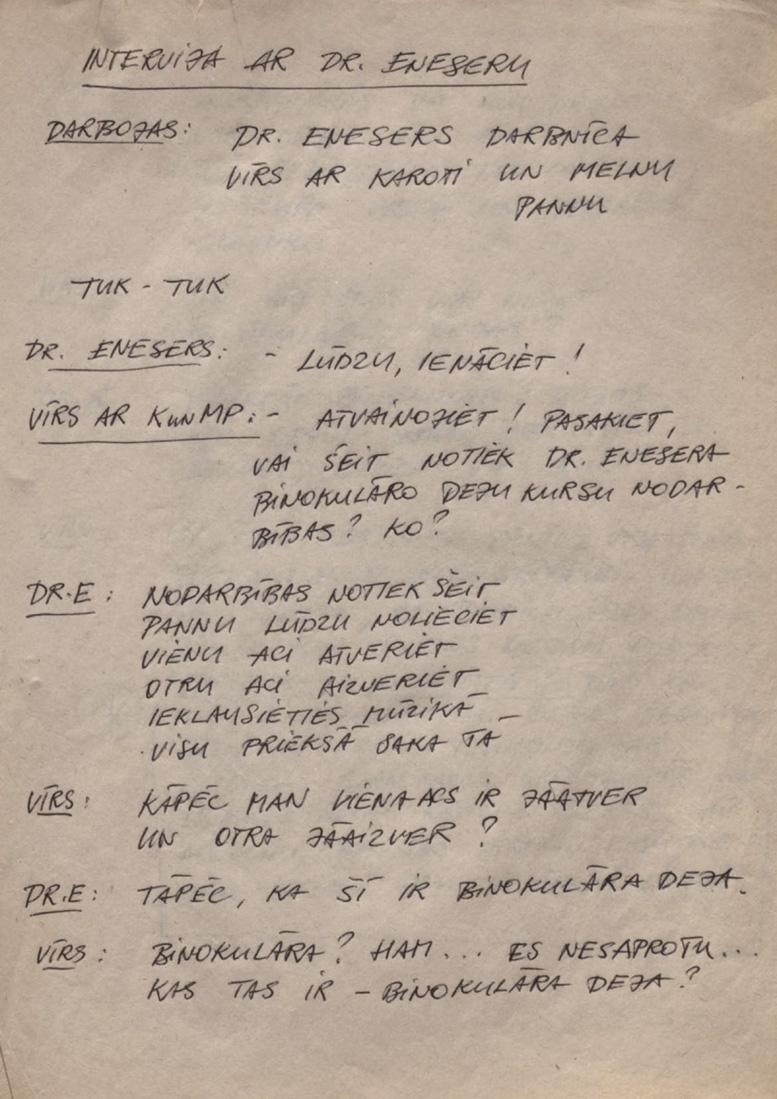 INTERVIJA AR DR. ENESERU
DARBOJAS: DR. ENESERS DARBNĪCA
VĪRS AR KAROTI UN MELNU
PANNU
TUK - TUK
DR. ENESERS: - LŪDZU, IENĀCIET!
VĪRS AR K un MP: - ATVAINOJIET! PASAKIET,
VAI ŠEIT NOTIEK DR. ENESERA
BINOKULĀRO DEJU KURSU NODAR-
BĪBAS? KO?
DR.E: NODARBĪBAS NOTIEK ŠEIT
PANNU LŪDZU NOLIECIET
VIENU ACI ATVERIET
OTRU ACI AIZVERIET
IEKLAUSIETIES MŪZIKĀ
VISU PRIEKŠĀ SAKA TĀ
VĪRS: KĀPĒC MAN VIENA ACS IR JĀATVER
UN OTRA JĀAIZVER?
DR.E: TĀPĒC, KA ŠĪ IR BINOKULĀRA DEJA.
VĪRS: BINOKULĀRA? HAM... ES NESAPROTU...
KAS TAS IR - BINOKULĀRA DEJA?